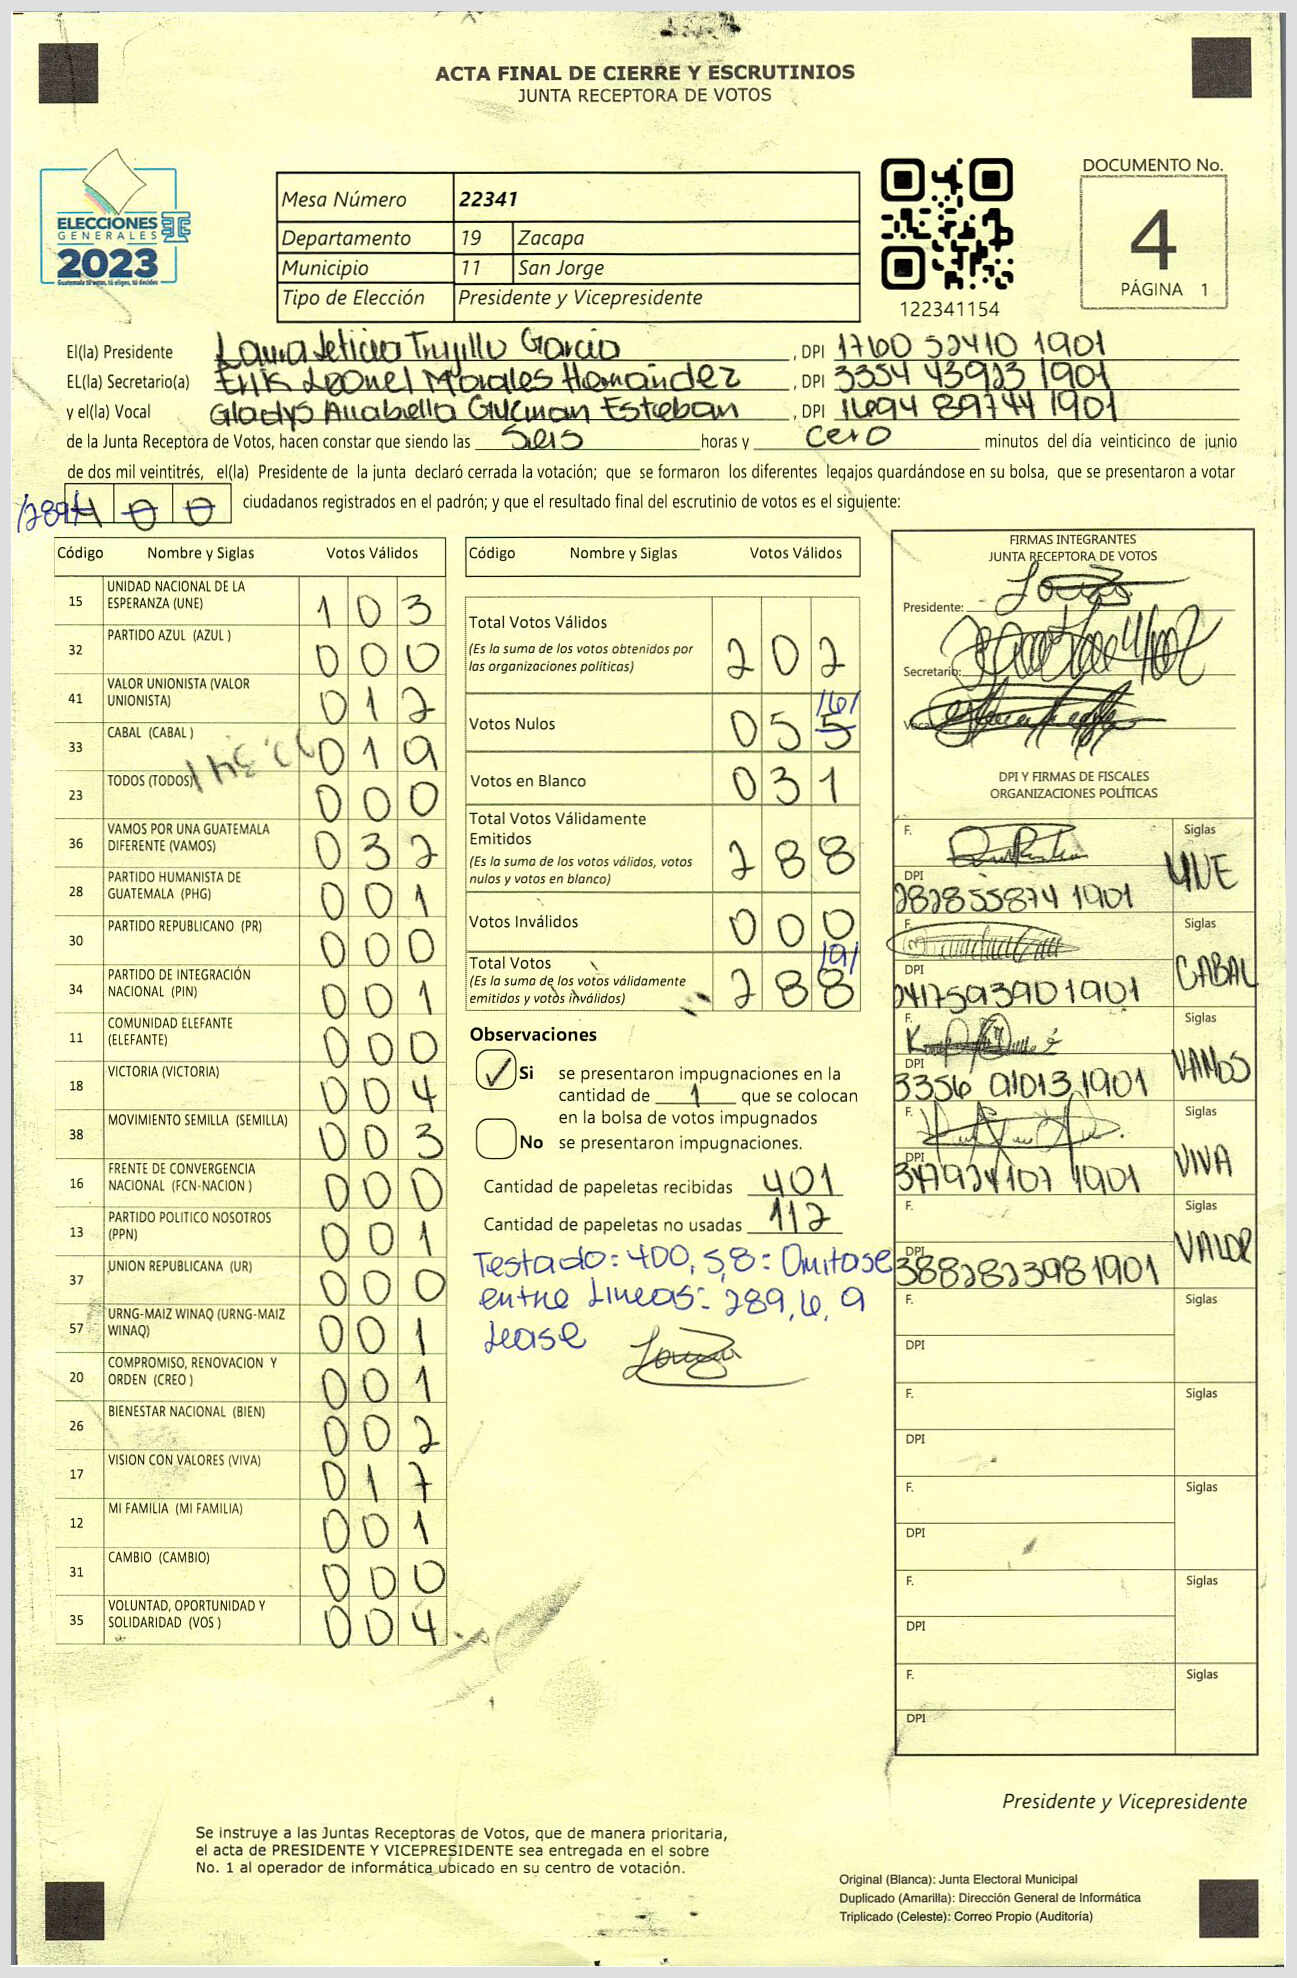 ACTA FINAL DE CIERRE Y ESCRUTINIOS
JUNTA RECEPTORA DE VOTOS
ELECCIONES
GENERALES
2023
Guatemala tú votas, tú eliges, tú decides
Mesa Número 22341
Departamento 19 Zacapa
Municipio 11 San Jorge
Tipo de Elección Presidente y Vicepresidente
122341154
DOCUMENTO No.
4
PÁGINA 1
El(la) Presidente Laura Leticia Trujillo Garcia , DPI 1760 52410 1901
EL(la) Secretario(a) Erik Leonel Morales Hernández , DPI 3354 43923 1901
y el(la) Vocal Gladys Anabella Guzman Esteban , DPI 1694 89744 1901
de la Junta Receptora de Votos, hacen constar que siendo las Seis horas y cero minutos del día veinticinco de junio
de dos mil veintitrés, el(la) Presidente de la junta declaró cerrada la votación; que se formaron los diferentes legajos guardándose en su bolsa, que se presentaron a votar
/289/ 400 ciudadanos registrados en el padrón; y que el resultado final del escrutinio de votos es el siguiente:
Código Nombre y Siglas Votos Válidos
15 UNIDAD NACIONAL DE LA ESPERANZA (UNE) 103
32 PARTIDO AZUL (AZUL ) 000
41 VALOR UNIONISTA (VALOR UNIONISTA) 012
33 CABAL (CABAL ) 019
23 TODOS (TODOS) 000
36 VAMOS POR UNA GUATEMALA DIFERENTE (VAMOS) 032
28 PARTIDO HUMANISTA DE GUATEMALA (PHG) 001
30 PARTIDO REPUBLICANO (PR) 000
34 PARTIDO DE INTEGRACIÓN NACIONAL (PIN) 001
11 COMUNIDAD ELEFANTE (ELEFANTE) 000
18 VICTORIA (VICTORIA) 004
38 MOVIMIENTO SEMILLA (SEMILLA) 003
16 FRENTE DE CONVERGENCIA NACIONAL (FCN-NACION ) 000
13 PARTIDO POLITICO NOSOTROS (PPN) 001
37 UNION REPUBLICANA (UR) 000
57 URNG-MAIZ WINAQ (URNG-MAIZ WINAQ) 001
20 COMPROMISO, RENOVACION Y ORDEN (CREO ) 001
26 BIENESTAR NACIONAL (BIEN) 002
17 VISION CON VALORES (VIVA) 017
12 MI FAMILIA (MI FAMILIA) 001
31 CAMBIO (CAMBIO) 000
35 VOLUNTAD, OPORTUNIDAD Y SOLIDARIDAD (VOS ) 004
Código Nombre y Siglas Votos Válidos
Total Votos Válidos 202
(Es la suma de los votos obtenidos por
las organizaciones políticas)
/6/
Votos Nulos 055
Votos en Blanco 031
Total Votos Válidamente
Emitidos 288
(Es la suma de los votos válidos, votos
nulos y votos en blanco)
Votos Inválidos 000
/9/
Total Votos 288
(Es la suma de los votos válidamente
emitidos y votos inválidos)
Observaciones
✓ Si se presentaron impugnaciones en la
cantidad de 1 que se colocan
en la bolsa de votos impugnados
No se presentaron impugnaciones.
Cantidad de papeletas recibidas 401
Cantidad de papeletas no usadas 112
Testado: 400, 5,8: Omitase
entre Lineas: 289, 6, 9
Lease
FIRMAS INTEGRANTES
JUNTA RECEPTORA DE VOTOS
Presidente:
Secretario:
DPI Y FIRMAS DE FISCALES
ORGANIZACIONES POLÍTICAS
F. Siglas
UNE
DPI
282855874 1901
F. Siglas
CABAL
DPI
241759390 1901
F. Siglas
VAMOS
DPI
3356 91013 1901
F. Siglas
VIVA
DPI
347924107 1901
F. Siglas
VALOR
DPI
388282398 1901
F. Siglas
DPI
F. Siglas
DPI
F. Siglas
DPI
F. Siglas
DPI
F. Siglas
DPI
Presidente y Vicepresidente
Se instruye a las Juntas Receptoras de Votos, que de manera prioritaria,
el acta de PRESIDENTE Y VICEPRESIDENTE sea entregada en el sobre
No. 1 al operador de informática ubicado en su centro de votación.
Original (Blanca): Junta Electoral Municipal
Duplicado (Amarilla): Dirección General de Informática
Triplicado (Celeste): Correo Propio (Auditoría)